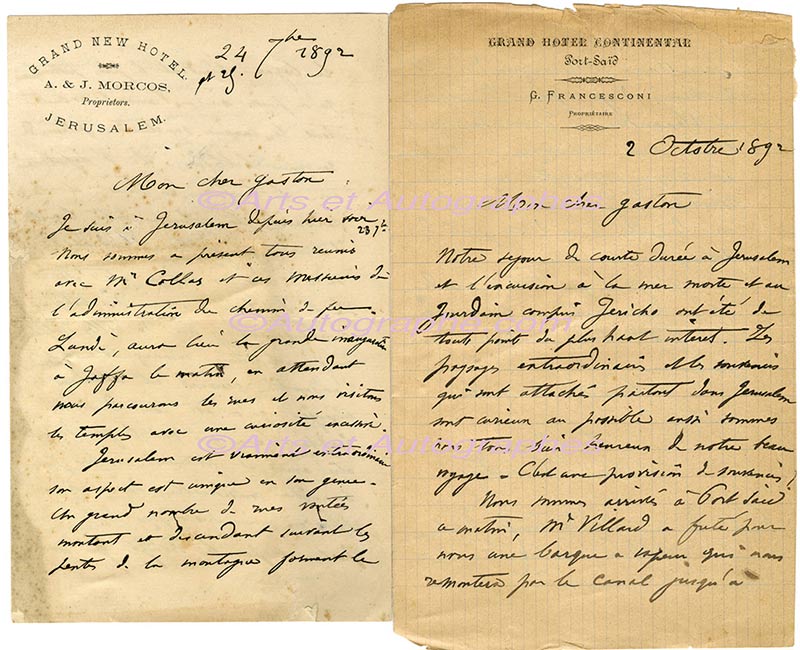 GRAND NEW HOTEL.
A. & J. MORCOS,
Proprietors.
JERUSALEM.
24 7bre 1892
Mon cher gaston
Je suis à Jerusalem depuis hier soir
23 7bre
Nous sommes a présent tous reunis
avec Mr Collas et ces messieurs de
l'administration du chemin de fer
Lundi, aura lieu la grande inauguration
à Jaffa le matin, en attendant
nous parcourons les rues et nous visitons
les temples avec une curiosité
Jerusalem est vraiment extraordinaire
son aspect est unique en son genre.
Un grand nombre de rues voutées
montant et descendant suivant les
pentes de la montagne forment le
GRAND HOTEL CONTINENTAL
Port-Saïd
G. FRANCESCONI
PROPRIÉTAIRE
2 Octobre 1892
Mon cher gaston
Notre sejour de courte durée à Jerusalem
et l'excursion à la mer morte et au
Jourdain compris Jericho ont été de
tous points du plus haut interet. Les
paysages extraordinaires et les souvenirs
qui sont attachés partout dans Jerusalem
sont curieux au possible aussi sommes
nous tous heureux de notre beau
voyage. C'est une provision de souvenirs!
Nous sommes arrivés à Port Said
ce matin, Mr Villard a freté pour
nous une barque a vapeur qui nous
remontera par le canal jusqu'à
©Arts et Autographes
©Autographe.com
©Arts et Autographes